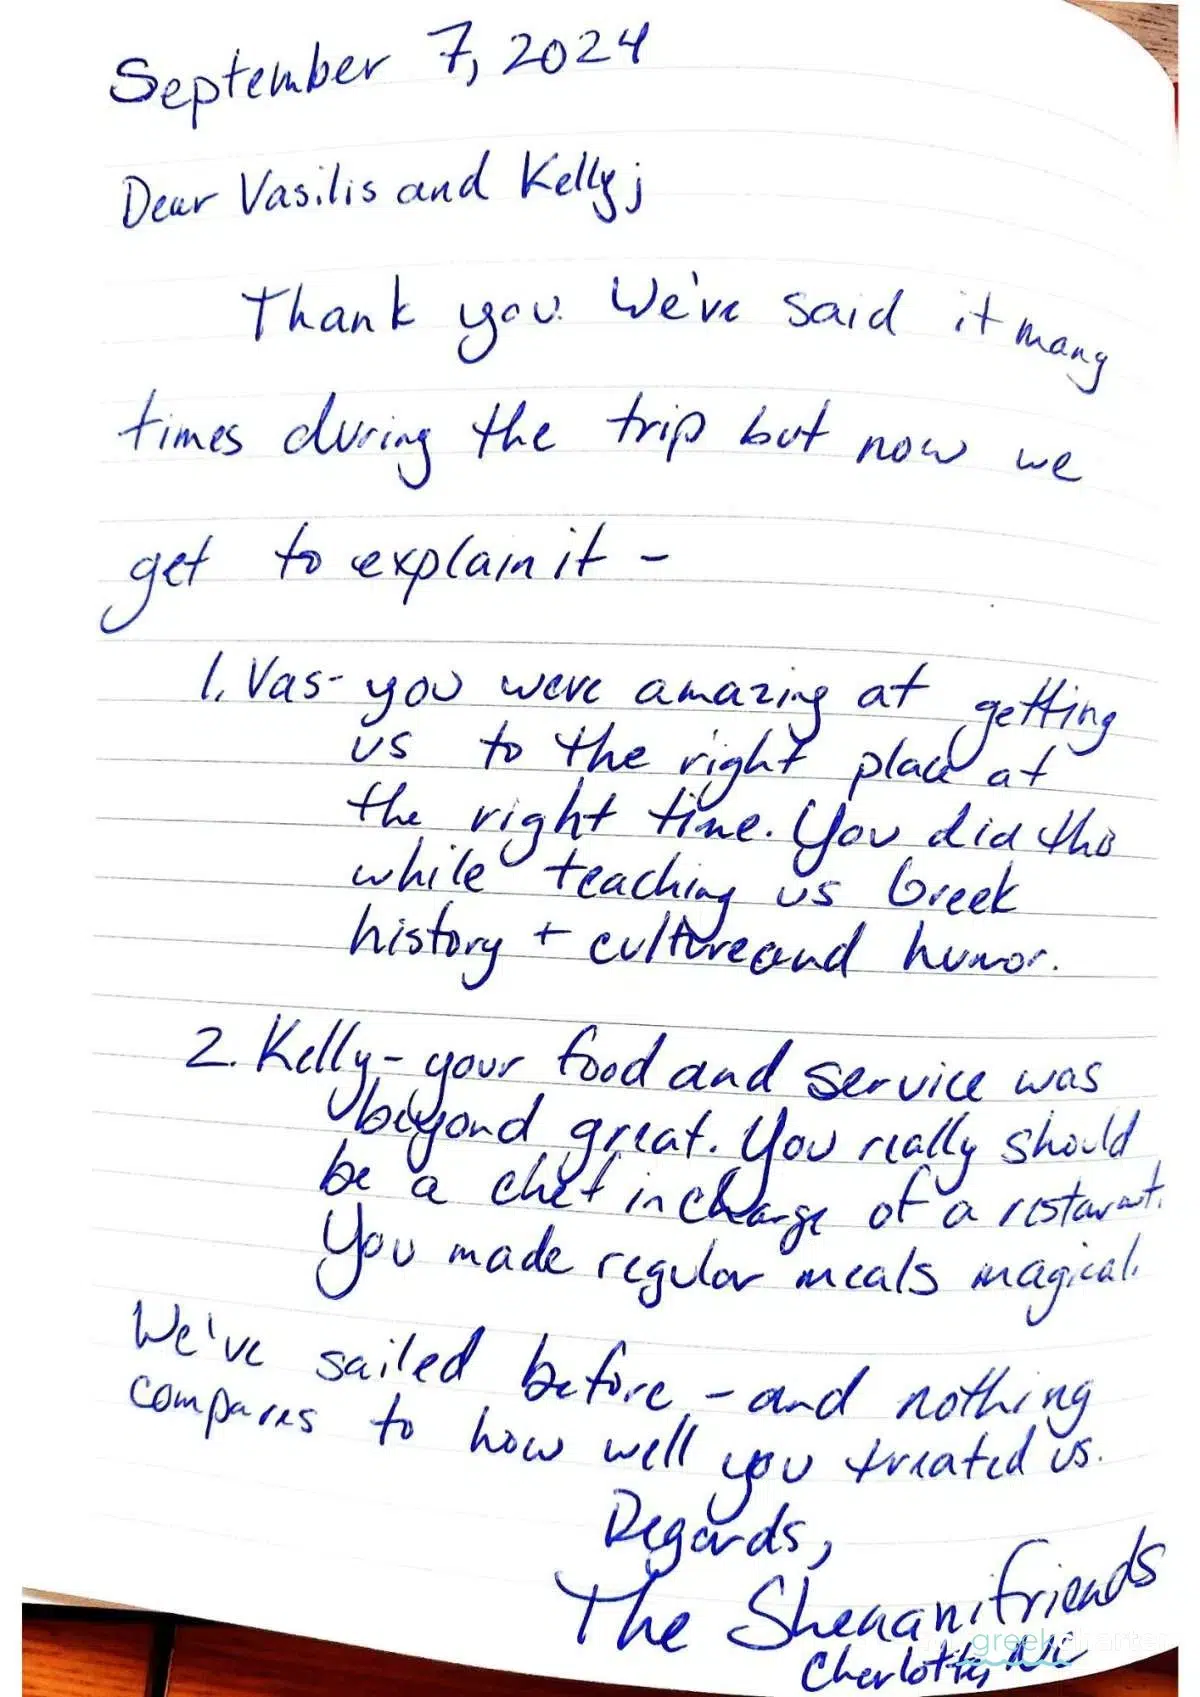 September 7, 2024
Dear Vasilis and Kelly;
Thank you. We've said it many
times during the trip but now we
get to explain it -
1. Vas- you were amazing at getting
us to the right place at
the right time. You did this
while teaching us Greek
history + culture and humor.
2. Kelly - your food and service was
beyond great. You really should
be a chef in charge of a restaurant.
You made regular meals magical.
We've sailed before - and nothing
compares to how well you treated us.
Regards,
The Shenanifriends
Charlotte, NC
greek charter